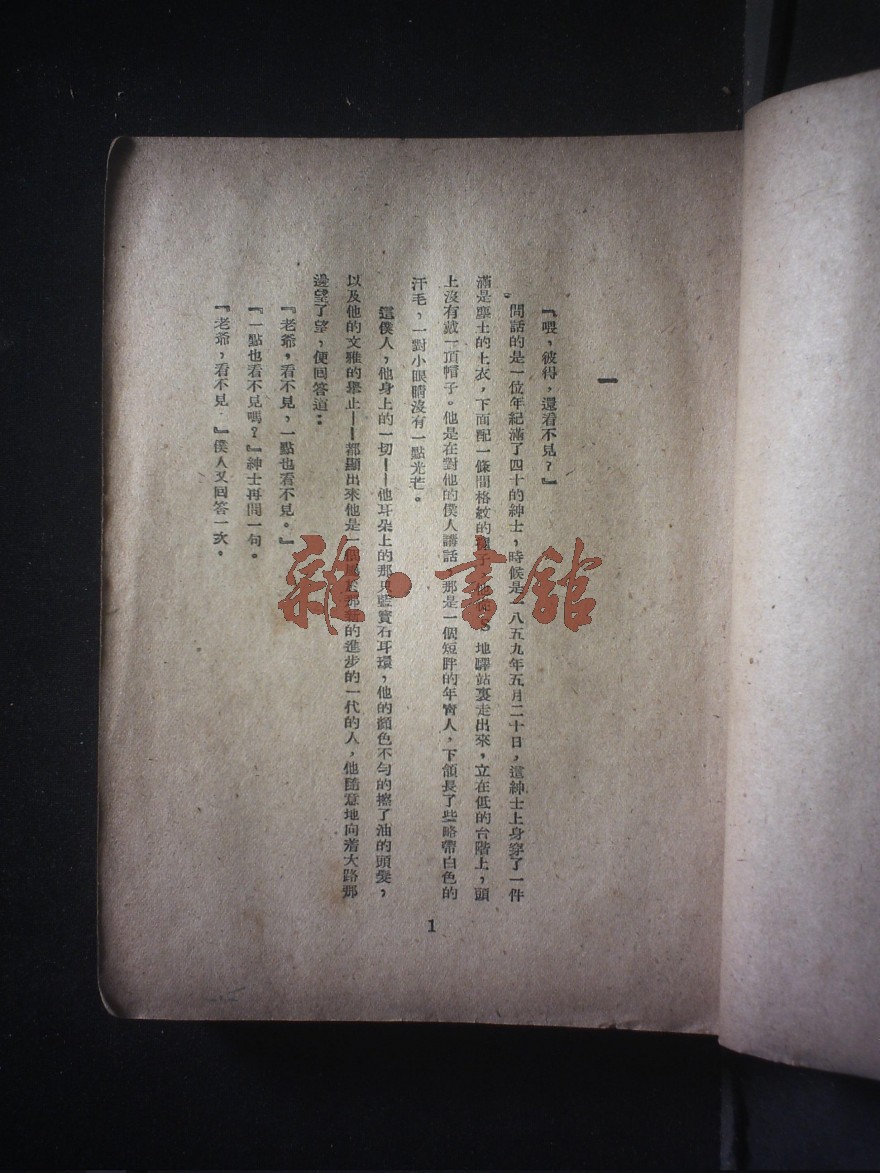 一
『喂，彼得，還看不見？』
問話的是一位年紀滿了四十的紳士，時候是一八五九年五月二十日，這紳士上身穿了一件
滿是塵土的上衣，下面配一條間格紋的褲子，他從 地驛站裏走出來，立在低的台階上，頭
上沒有戴一頂帽子。他是在對他的僕人講話，那是一個短胖的年靑人，下頷長了些略帶白色的
汗毛，一對小眼睛沒有一點光芒。
這僕人，他身上的一切——他耳朵上的那只藍寶石耳環，他的顏色不勻的擦了油的頭髮，
以及他的文雅的舉止——都顯出來他是一個 的進步的一代的人，他隨意地向着大路那
邊望了望，便回答道：
『老爺，看不見，一點也看不見。』
『一點也看不見嗎？』紳士再問一句。
『老爺，看不見。』僕人又回答一次。
1
雜·書館